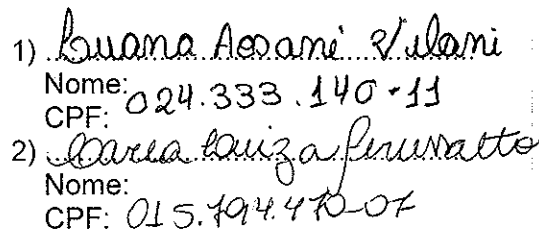 1) Luana Assani Vilani
Nome:
CPF: 024.333.140-11
2) Maria Luiza
Nome:
CPF: 015.794.470-07